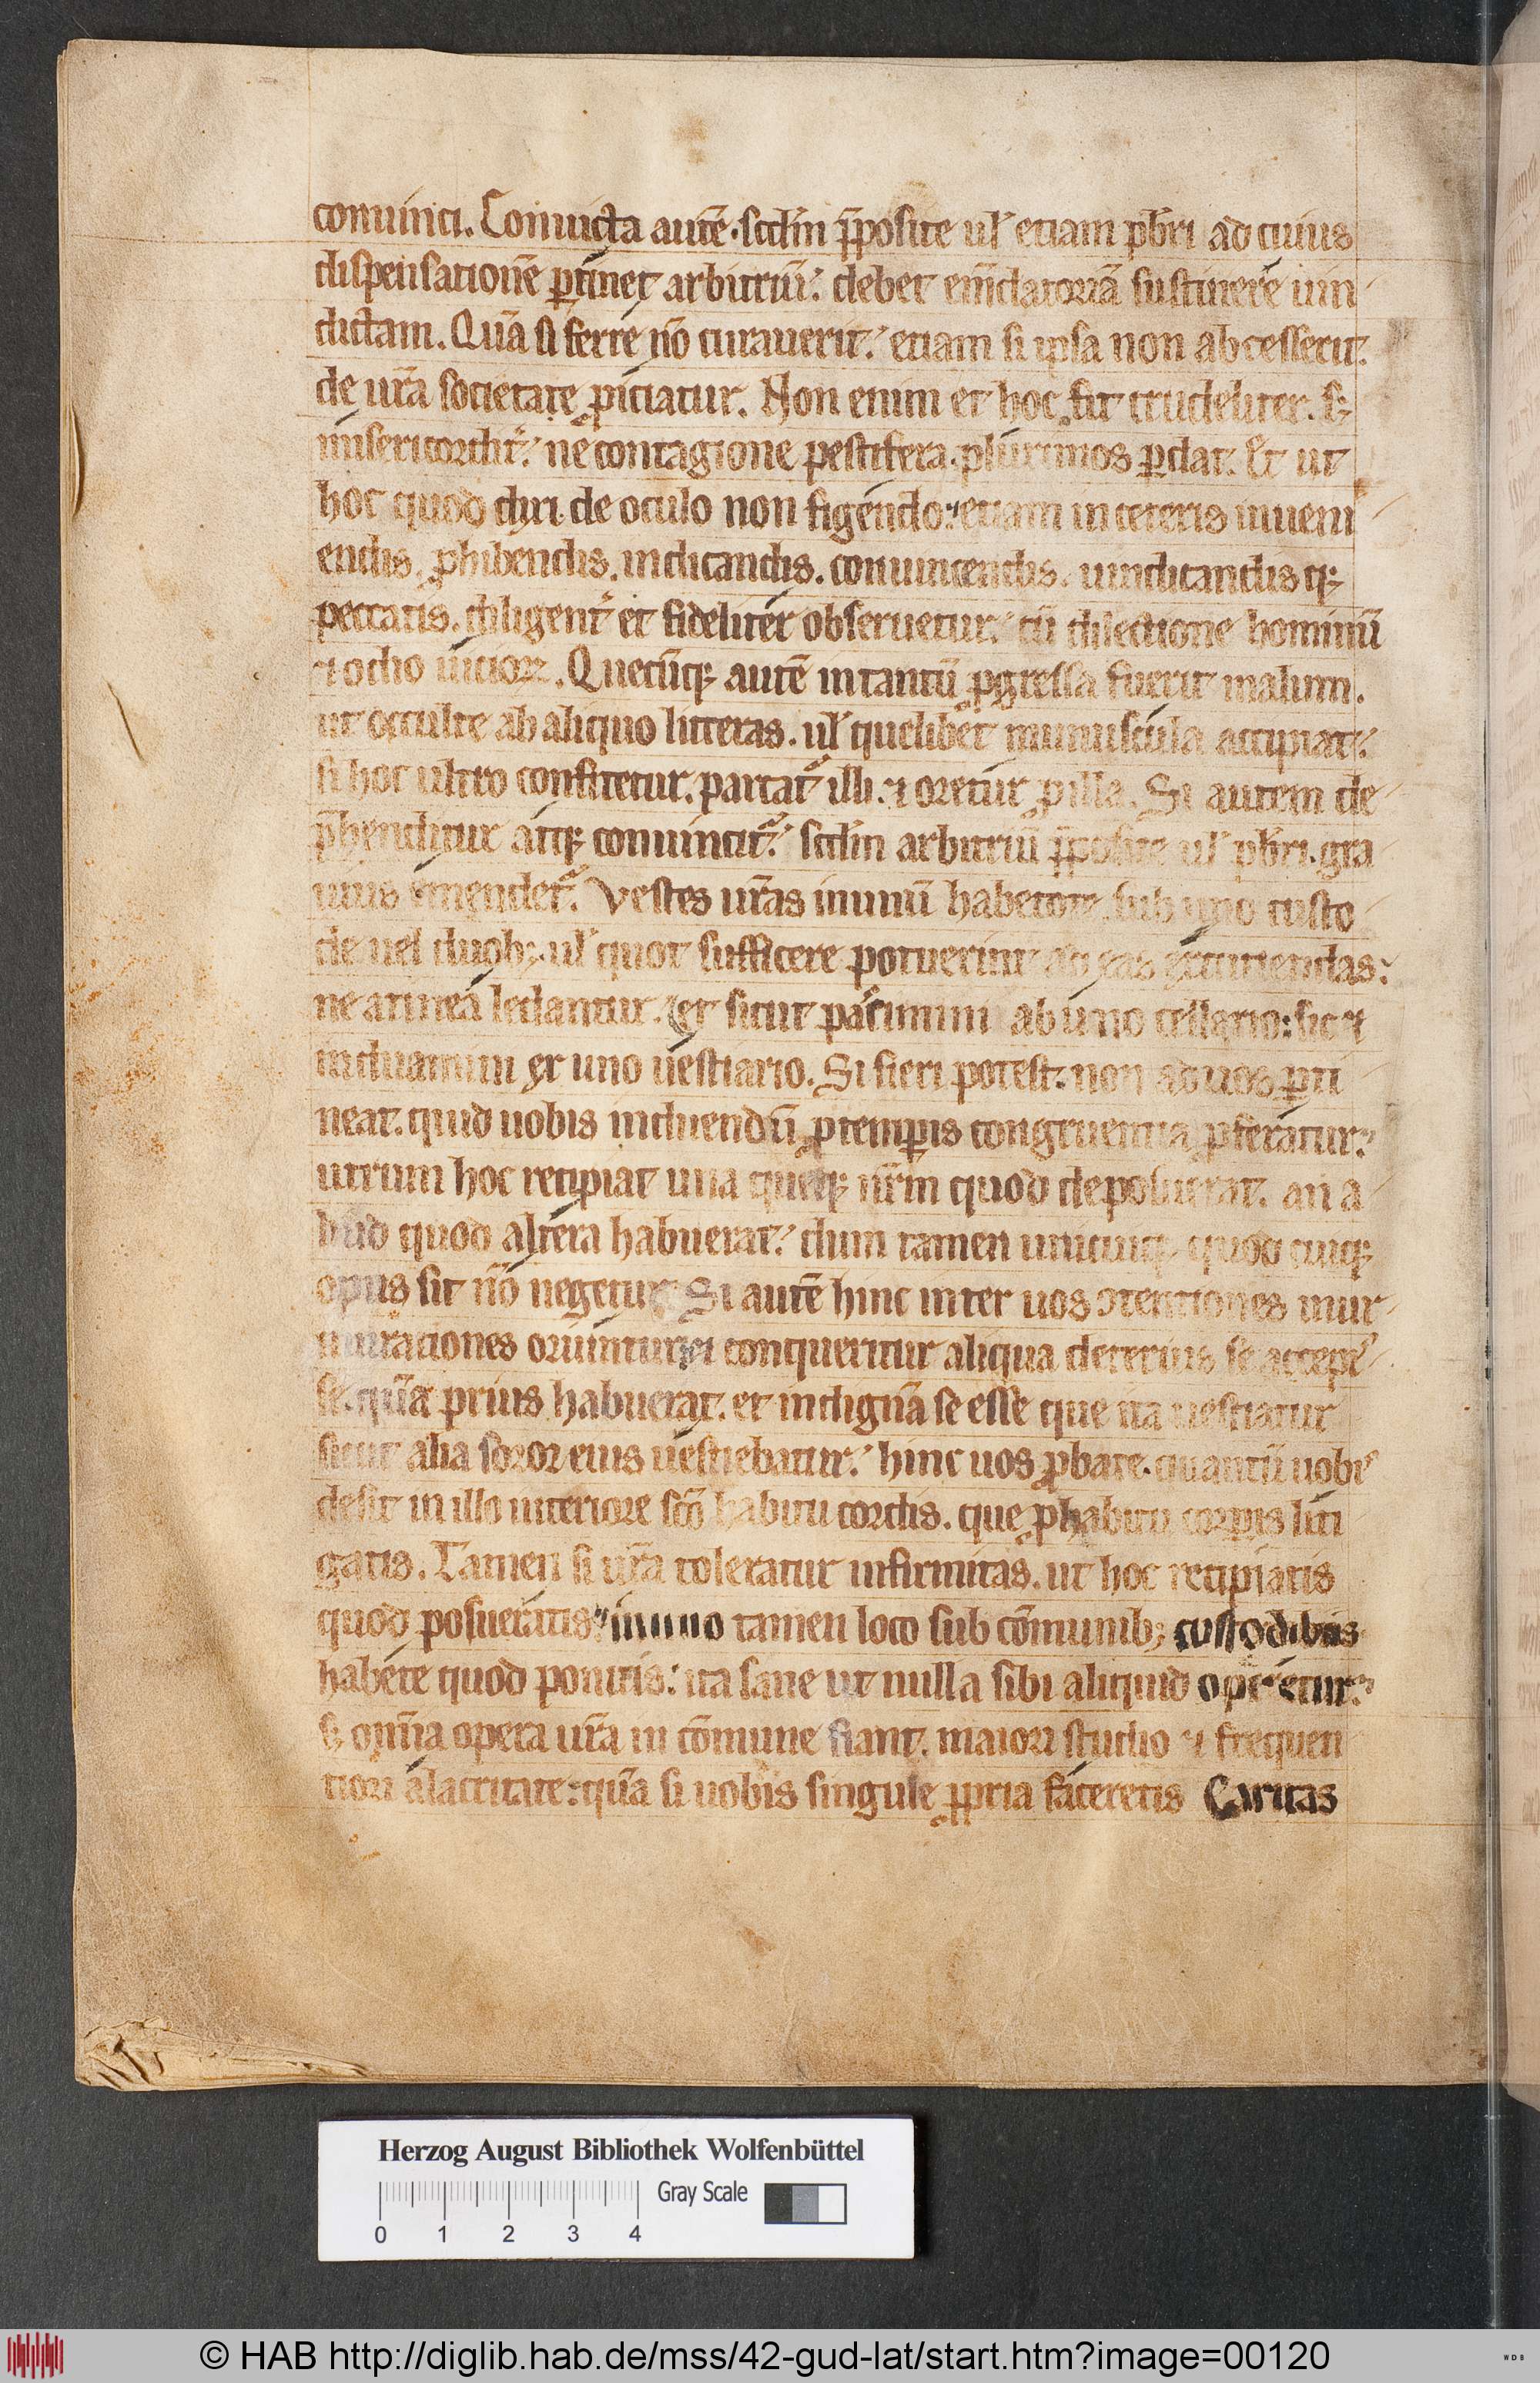 conuinci. Conuicta autē. scd̄m p̄posite ul̄ etiam p̄bri ad cuius
dispensationē ꝑtinet arbitriū: debet em̄datoriā sustinere uin
dictam. Quā si ferre nō curauerit: etiam si ipsa non abcesserit.
de ur̄a societate ꝓiciatur. Non enim et hoc fit crudeliter. s;
misericordit̉: ne contagione pestifera. plurimos ꝑdat. Et ut
hoc quod dixi de oculo non figendo: etiam in ceteris inueni
endis. ꝓhibendis. indicandis. conuincendis. uindicandisqꝫ
peccatis. diligent̉ et fideliter obseruetur: cū dilectione hominū
⁊ odio uicioꝝ. Quecūqꝫ autē in tantū ꝓgressa fuerit malum.
ut occulte ab aliquo litteras. ul̄ quelibet munuscula accipiat:
si hoc ultro confitetur. parcat᷑ illi. ⁊ oretur ꝓ illa. Si autem de
p̄henditur atqꝫ conuincit᷑: scd̄m arbitriū p̄posite ul̄ p̄bri. gra
uius emendet᷑. Vestes ur̄as in unū habetote. sub uno custo
de uel duobꝫ. ul̄ quot sufficere potuerint ad eas excutiendas:
ne a tinea ledantur. Et sicut pascimini ab uno cellario: sic ⁊
induamini ex uno uestiario. Si fieri potest. non ad uos ꝑti
neat. quid uobis induendū ꝓ temꝑis congruentia ꝓferatur:
utrum hoc recipiat una queqꝫ ur̄m quod deposuerat. an a
liud quod altera habuerat: dum tamen unicuiqꝫ quod cuiqꝫ
opus sit nō negetur. Si autē hinc inter uos ↄtentiones mur
murationes oriuntur. et conqueritur aliqua deterius se accepis
se. quā prius habuerat. et indignā se esse que ita uestiatur
sicut alia soror eius uestiebatur: hinc uos ꝓbate. quantū uobis
desit in illo interiore sc̄o habitu cordis. que ꝓ habitu corꝑis liti
gatis. Tamen si ur̄a toleratur infirmitas. ut hoc recipiatis
quod posueratis: in uno tamen loco sub cōmunibꝫ custodibus
habete quod ponitis: ita sane ut nulla sibi aliquid operetur:
s; om̄ia opera ur̄a in cōmune fiant. maiori studio ⁊ frequen
tiori alacritate: quā si uobis singule ꝓpria faceretis Caritas
Herzog August Bibliothek Wolfenbüttel
Gray Scale
0 1 2 3 4
© HAB http://diglib.hab.de/mss/42-gud-lat/start.htm?image=00120
WDB